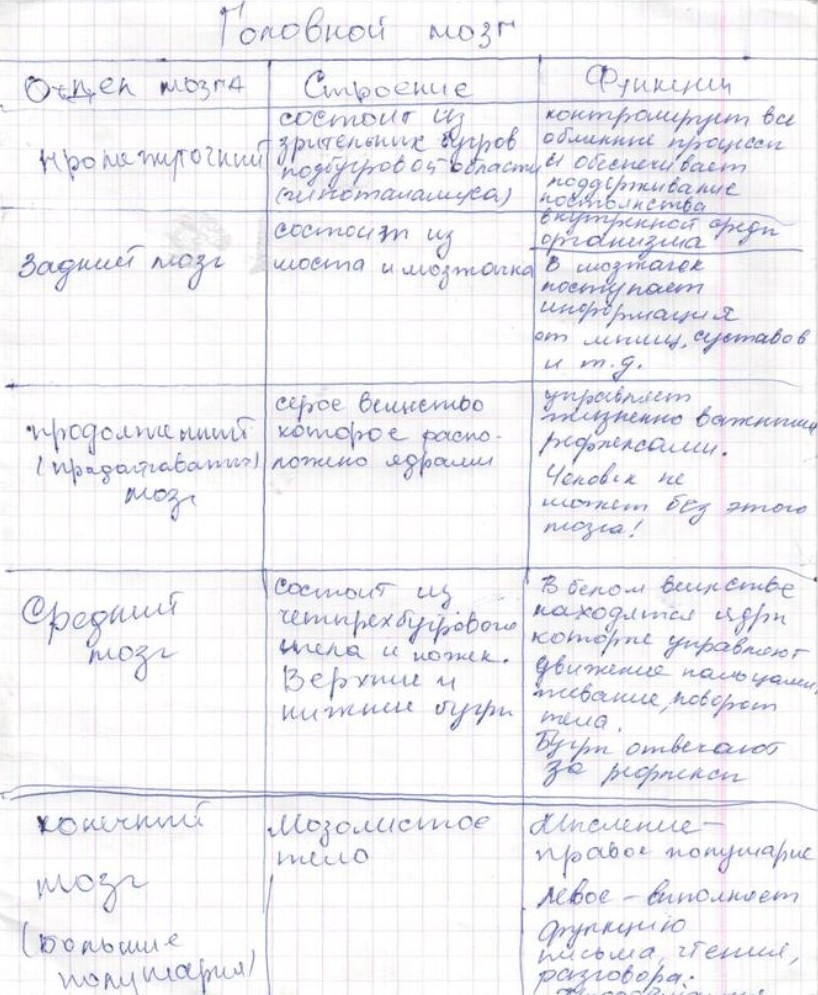 Головной мозг
Отдел мозга
Строение
Функции
промежуточный
состоит из
зрительных бугров
подбугровой области
(гипоталамуса)
контролирует все
обменные процессы
и обеспечивает
поддерживание
постоянства
внутренной среды
организма
Задний мозг
состоит из
моста и мозжечка
В мозжечок
поступает
информация
от мышц, суставов
и т.д.
продолженный
мозг
серое вещество
которое распо-
ложено ядрами
управляет
жизненно важными
рефлексами.
Человек не
может без этого
мозга!
Средний
мозг
состоит из
четырехбугрового
тела и ножек.
Верхние и
нижние бугры
В белом веществе
находятся ядра
которые управляют
движение пальцами,
жевание, поворот
тела.
Бугры отвечают
за рефлексы
конечный
мозг
(большие
полушария)
Мозолистое
тело
Мышление –
правое полушарие
левое – выполняет
функцию
письма, чтения,
разговора.